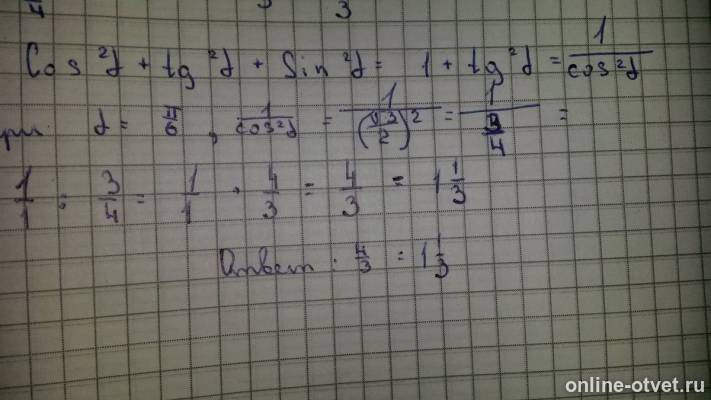 4 3
Cos²α + tg²α + Sin²α = 1 + tg²α = 1/cos²α
при α = π/6, 1/cos²α = 1/(√3/2)² = 1/(3/4) =
1/1 : 3/4 = 1/1 · 4/3 = 4/3 = 1 1/3
Ответ: 4/3 = 1 1/3
online-otvet.ru